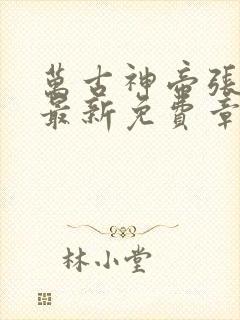 萬古神帝張
最新免費章
林小堂